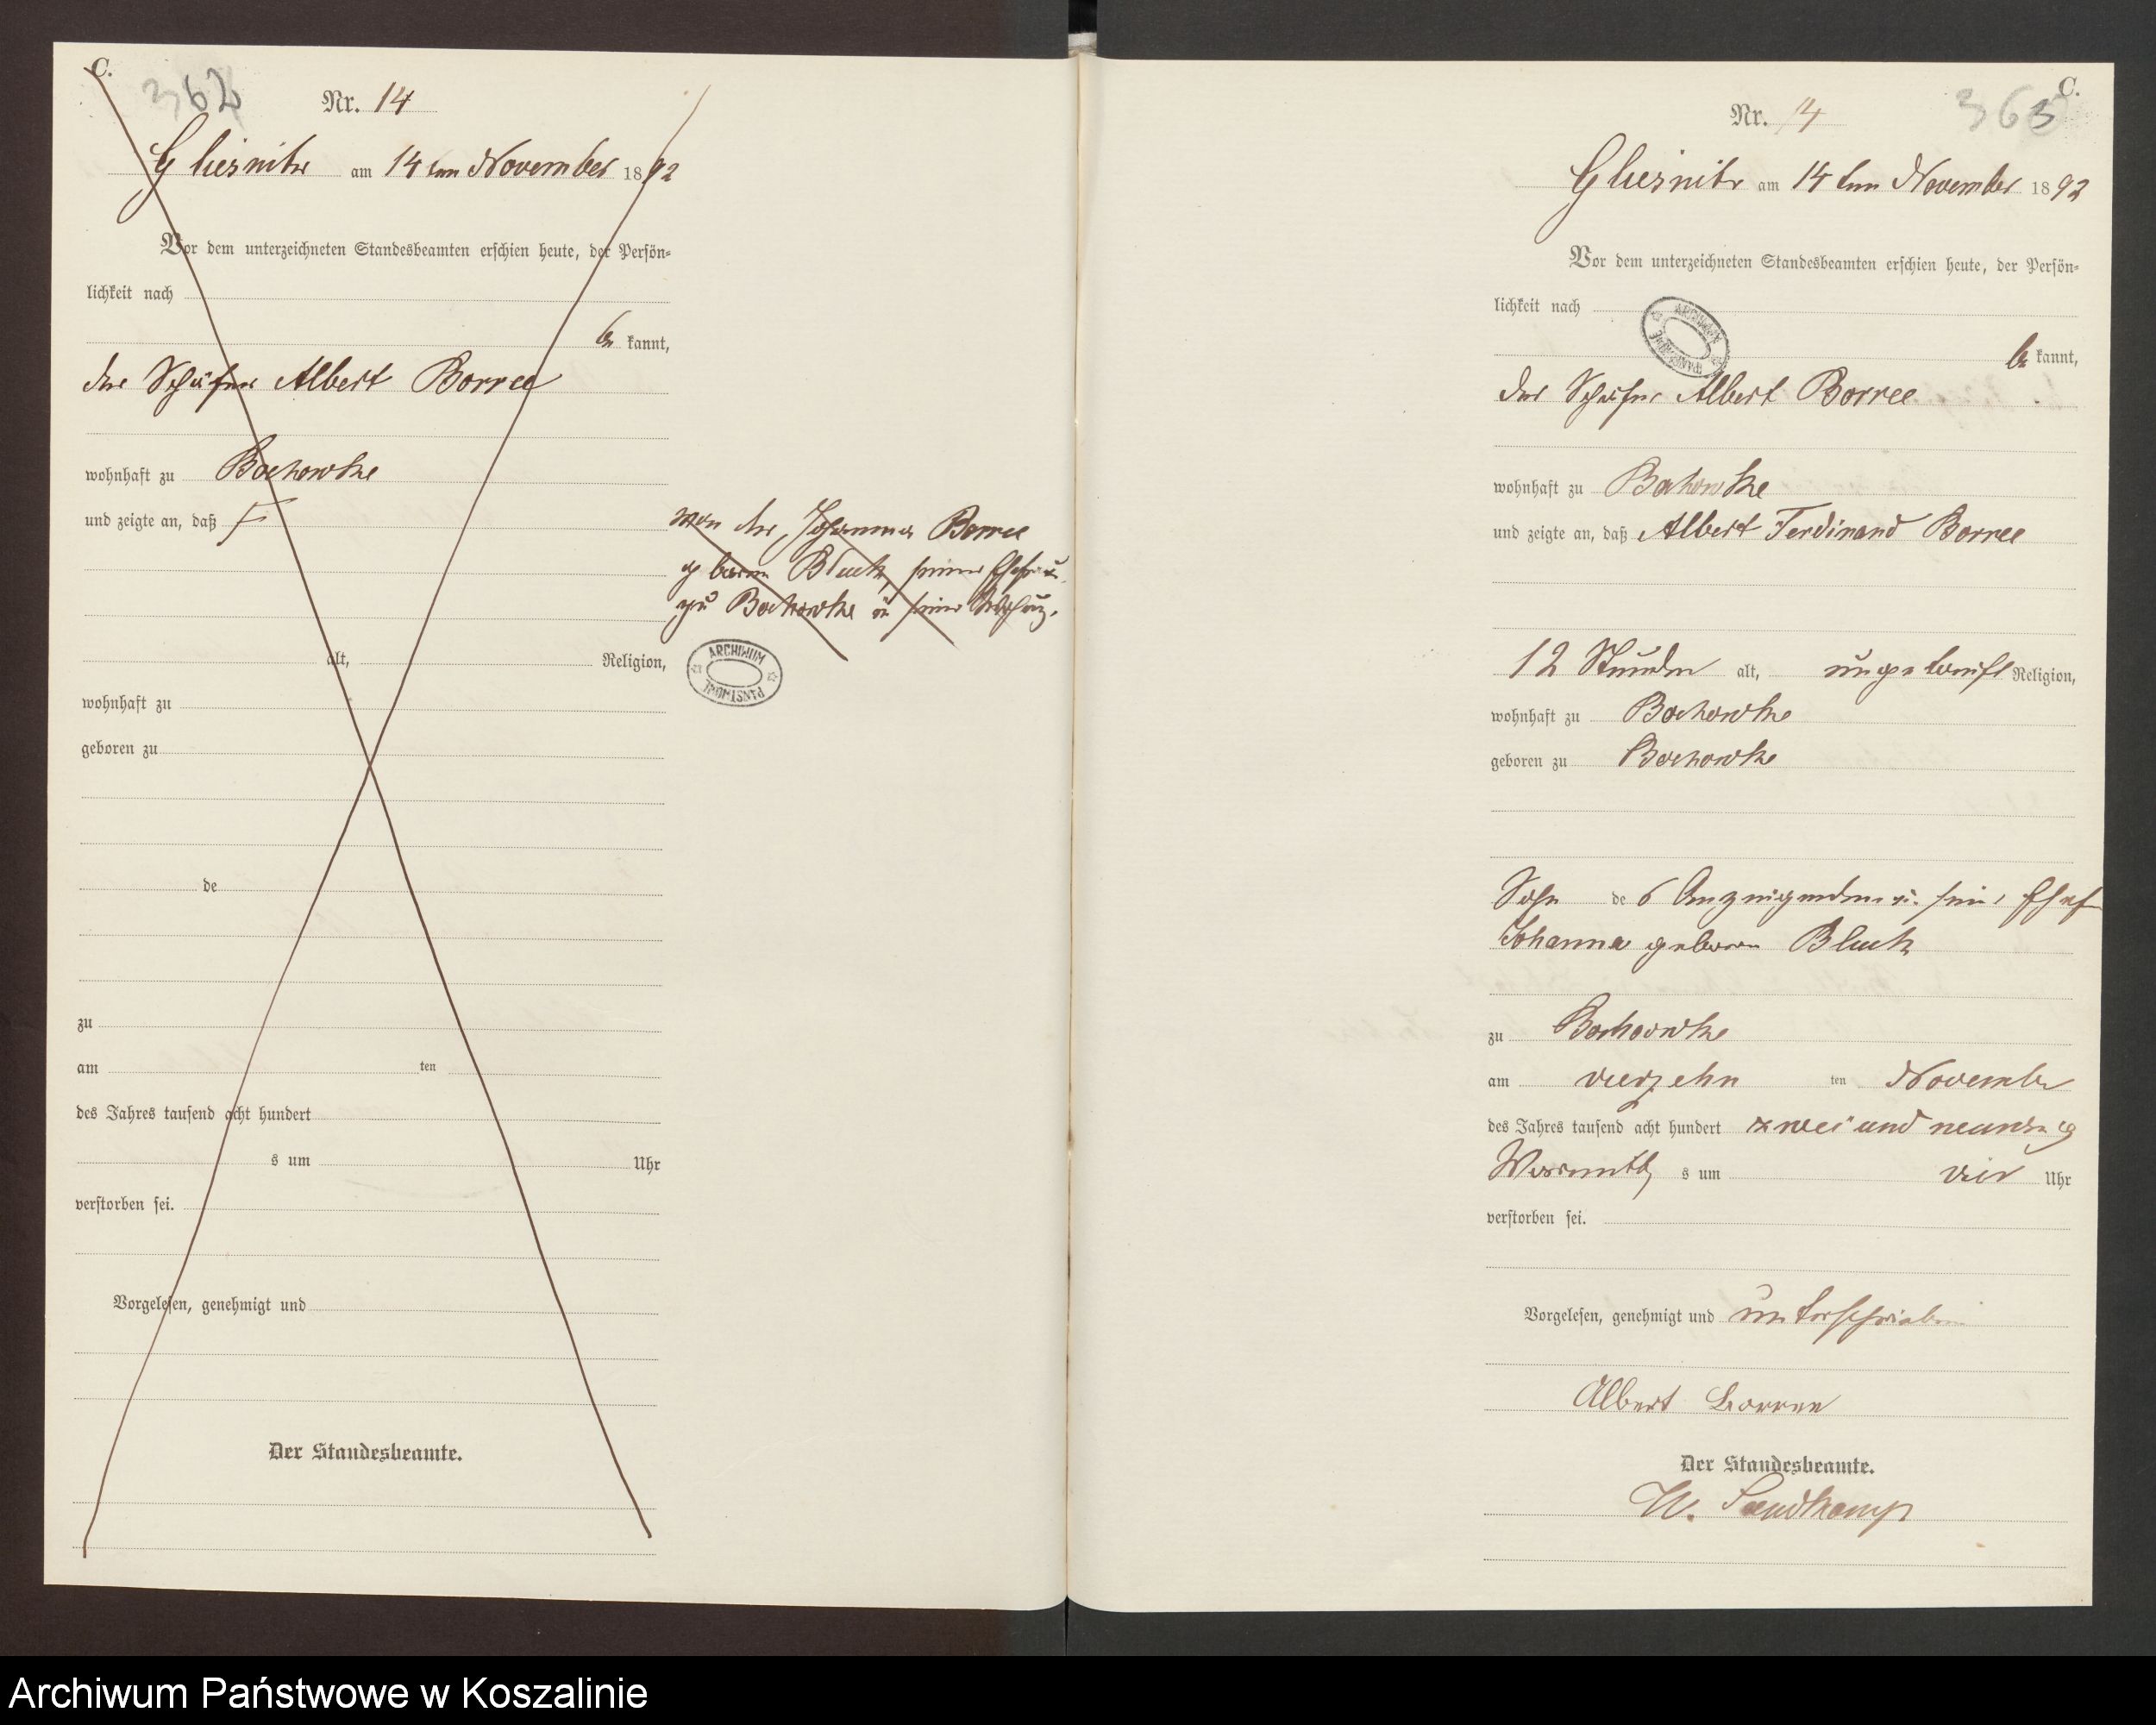 C.
362
Nr. 14
Gliesnitz am 14ten November 1892
Vor dem unterzeichneten Standesbeamten erschien heute, der Persön-
lichkeit nach
be kannt,
der Schäfer Albert Borree
wohnhaft zu Bochowke
und zeigte an, daß
von der Johanna Borree
geboren Bluck, seiner Ehefrau
zu Bochowke in seiner
alt, Religion,
ARCHIWUM PAŃSTWOWE
wohnhaft zu
geboren zu
de
zu
am ten
des Jahres tausend acht hundert
s um Uhr
verstorben sei.
Vorgelesen, genehmigt und
Der Standesbeamte.
C.
363
Nr. 14
Gliesnitz am 14ten November 1892
Vor dem unterzeichneten Standesbeamten erschien heute, der Persön-
lichkeit nach
ARCHIWUM PAŃSTWOWE
be kannt,
der Schäfer Albert Borree
wohnhaft zu Bochowke
und zeigte an, daß Albert Ferdinand Borree
12 Stunden alt, ungetauft Religion,
wohnhaft zu Bochowke
geboren zu Bochowke
Sohn des Anzeigenden u. seiner Ehefr
Johanna geboren Bluck
zu Bochowke
am vierzehn ten November
des Jahres tausend acht hundert zwei und neunzig
Vormittags um vier Uhr
verstorben sei.
Vorgelesen, genehmigt und unterschrieben
Albert Borree
Der Standesbeamte.
W. Sandkamp
Archiwum Państwowe w Koszalinie